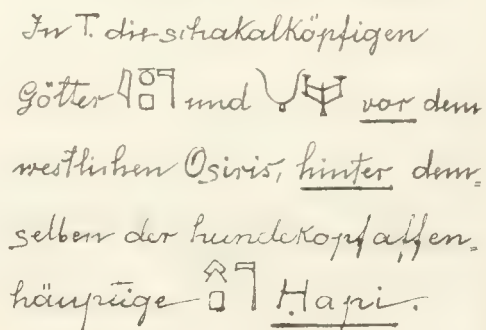 In T. die schakalköpfigen
Götter und vor dem
westlichen Osiris, hinter dem=
selben der hundekopfaffen=
häuptige Hapi.